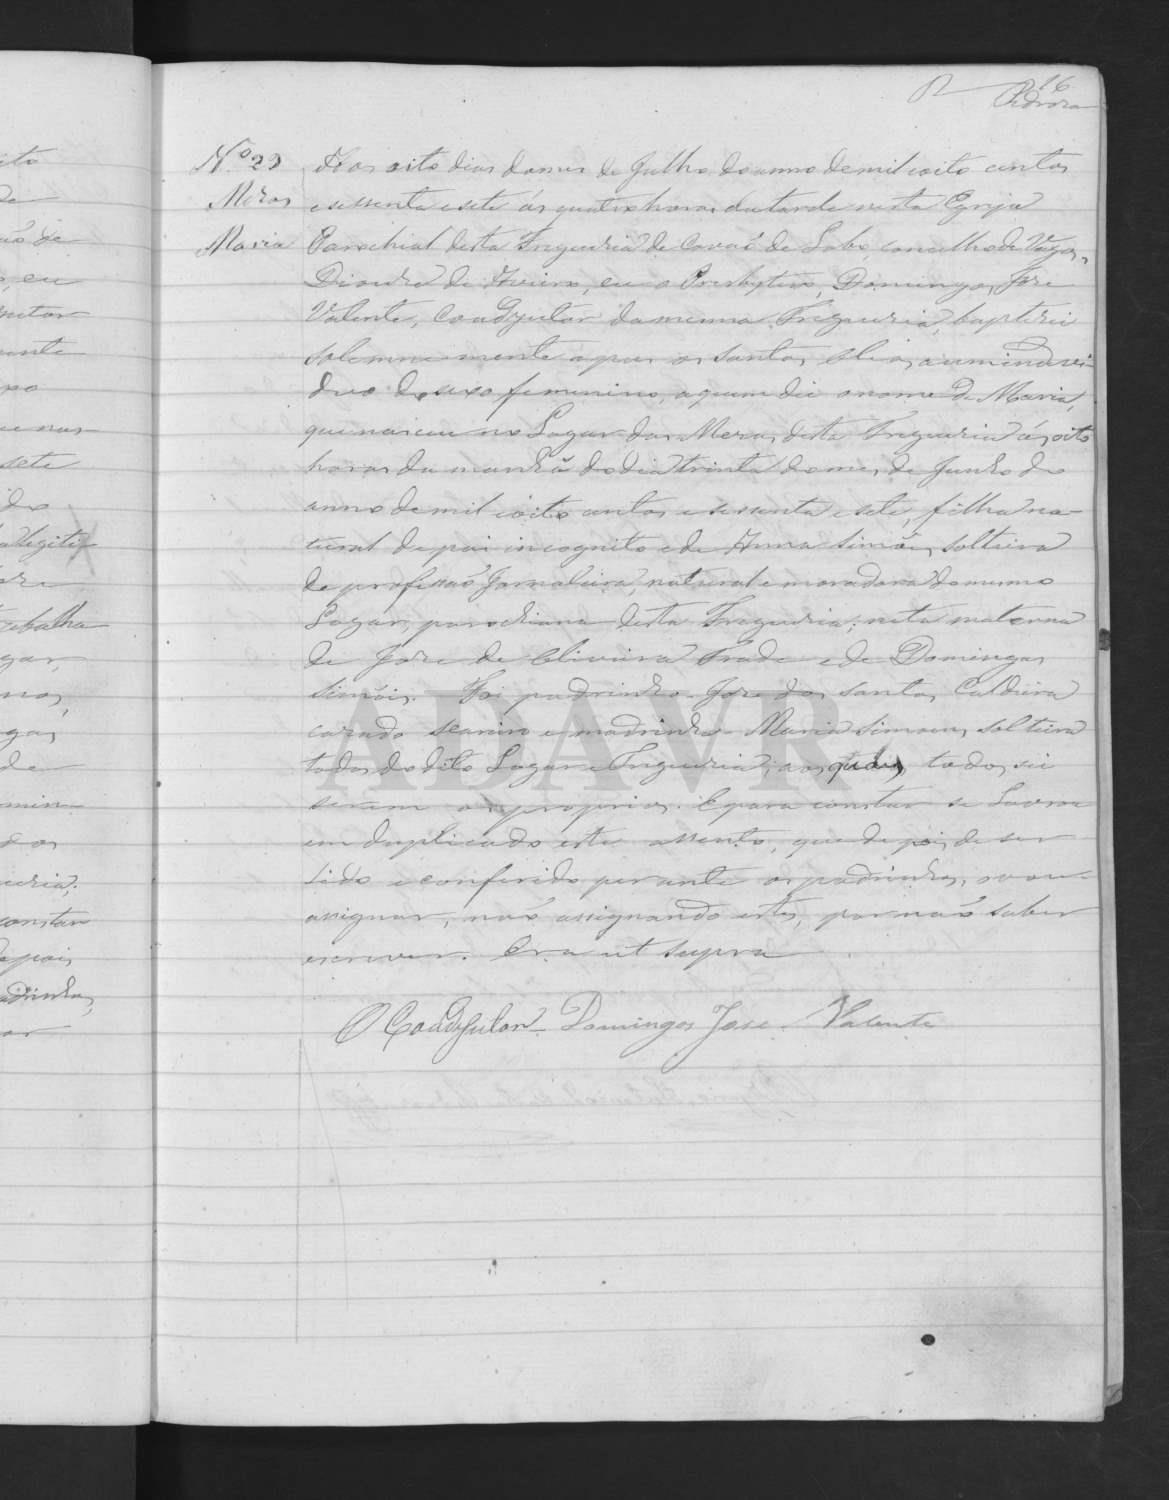 16
Pedroza
Nº 29
Mezas
Maria
Aos oito dias do mes de Julho do anno de mil oito centos
e sessenta e sete ás quatro horas da tarde nesta Egreja
Parochial desta Freguezia de Covaõ de Lobo, concelho de Vagos,
Diocese de Aveiro, eu o Presbytero, Domingos Jose
Valente, Coadjutor da mesma Freguezia, baptizei
solemnemente e puz os santos oleos a um indivi-
duo do sexo femenino, a quem dei o nome de Maria,
que nasceu no Logar das Mezas desta Freguezia ás oito
horas da manhã do dia trinta do mes de Junho do
anno de mil oito centos e sessenta e sete, filha na-
tural de pai incognito e de Anna Simões, solteira
de profissaõ Jornaleira, natural e moradora do mesmo
Logar, parochiana desta Freguezia; neta materna
de Joze de Oliveira Frade e de Domingas
Simões. Foi padrinho Joze dos Santos Caldeira
cazado e madrinha Maria Simoens, solteira
todos do dito Logar e Freguezia, os quaes todos sei
serem os proprios. E para constar se lavrou
em duplicado este assento, que depois de ser
lido e conferido perante os padrinhos, vou
assignar, naõ assignando estes, por naõ saber
escrever. Era ut supra
O Coadjutor Domingos Jose Valente
ito
de
aõ de
eu
ente
sete
do
legiti-
oze
gar,
gas
de
min-
dos
uezia;
constar
depois
adrinhos,
ADAVR